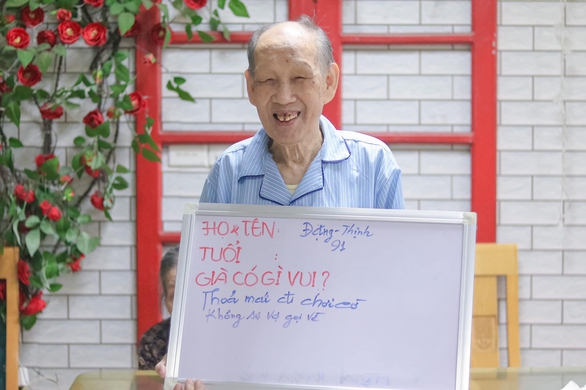 HỌ & TÊN: Đặng - Thịnh
TUỔI : 91
GIÀ CÓ GÌ VUI?
Thoải mái đi chơi cờ
Không sợ vợ gọi về